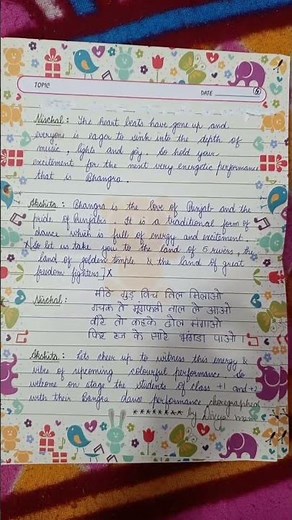 TOPIC
DATE
Nischal: The heart beats have gone up and
everyone is eager to sink into the depth of
music, lights and joy. So hold your
excitement for the next very energetic performance
that is Bhangra.
Akshita: Bhangra is the love of Punjab and the
pride of Punjabis. It is a traditional form of
dance which is full of energy and excitement.
X[So let us take you to the land of 5 rivers, the
land of golden temple & the land of great
freedom fighters.]X
Nischal: मीठे गुड़ विच तिल मिलाओ
गचक ते मूंगफली नाल ले आओ
वीरे तो कहके ढोल मंगाओ
फिर रज के सारे भंगड़ा पाओ।
Akshita: Lets cheer up to witness this energy &
vibes of upcoming colourful performance. So
welcome on stage the students of class +1 and +2
with their Bangra dance performance choreographed
by